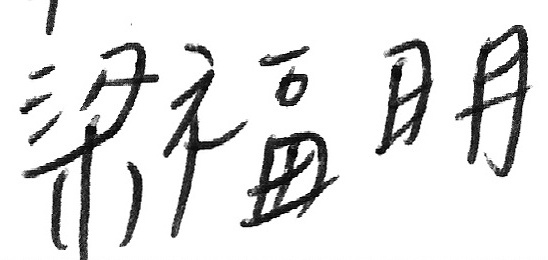 梁福明